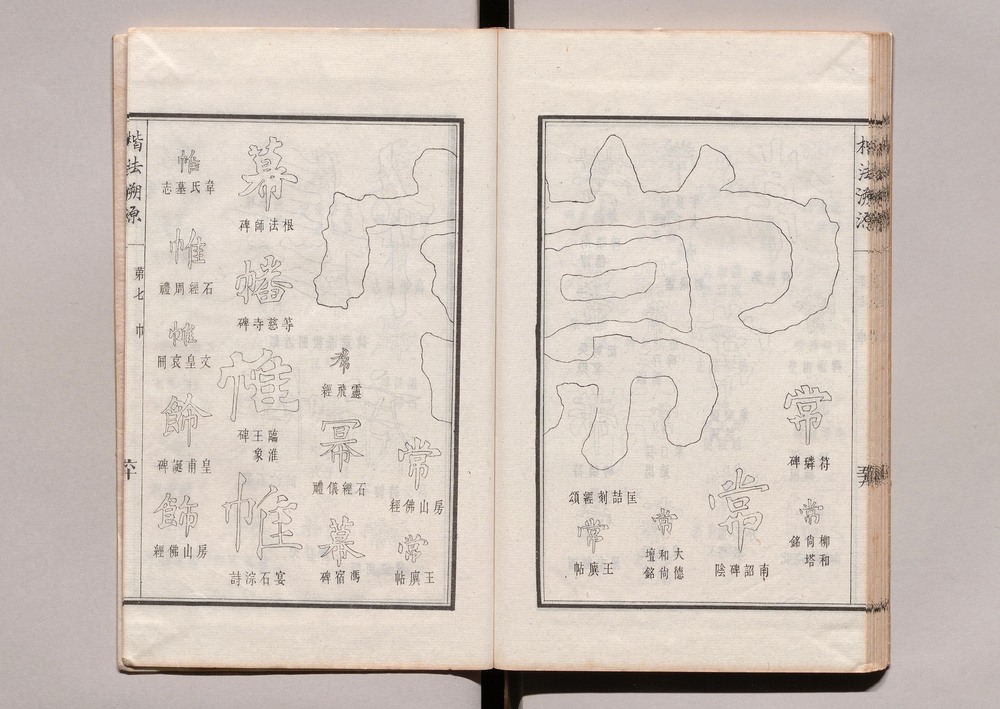 楷法溯源
常
符璘碑
常
柳和尙塔銘
常
南詔碑陰
常
大德和尙壇銘
常
匡喆刻經頌
常
王廙帖
常
房山佛經
常
王廙帖
希
靈飛經
冪
石經儀禮
幕
馮宿碑
幕
根法師碑
幡
等慈寺碑
帷
臨淮王象碑
帷
宴石淙詩
帷
韋氏墓志
帷
石經周禮
帷
文皇哀冊
飾
皇甫誕碑
飾
房山佛經
楷法溯源
第七
巾
六十